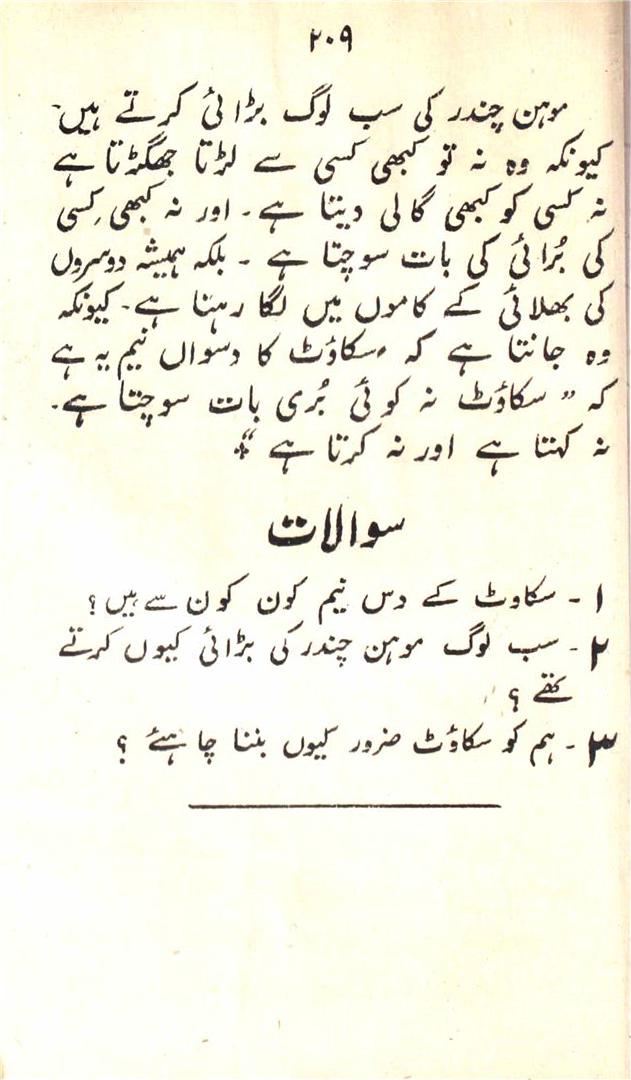 ۲۰۹
موہن چندر کی سب لوگ بڑائی کرتے ہیں۔
کیونکہ وہ نہ تو کبھی کسی سے لڑتا جھگڑتا ہے
نہ کسی کو کبھی گالی دیتا ہے۔ اور نہ کبھی کِسی
کی بُرائی کی بات سوچتا ہے ۔ بلکہ ہمیشہ دوسروں
کی بھلائی کے کاموں میں لگا رہتا ہے۔ کیونکہ
وہ جانتا ہے کہ سکاؤٹ کا دسواں نیم یہ ہے
کہ ”سکاؤٹ نہ کوئی بُری بات سوچتا ہے۔
نہ کہتا ہے اور نہ کرتا ہے“
سوالات
۱۔ سکاوٹ کے دس نیم کون کون سے ہیں؟
۲۔ سب لوگ موہن چندر کی بڑائی کیوں کرتے
تھے ؟
۳۔ ہم کو سکاؤٹ ضرور کیوں بننا چاہئے ؟